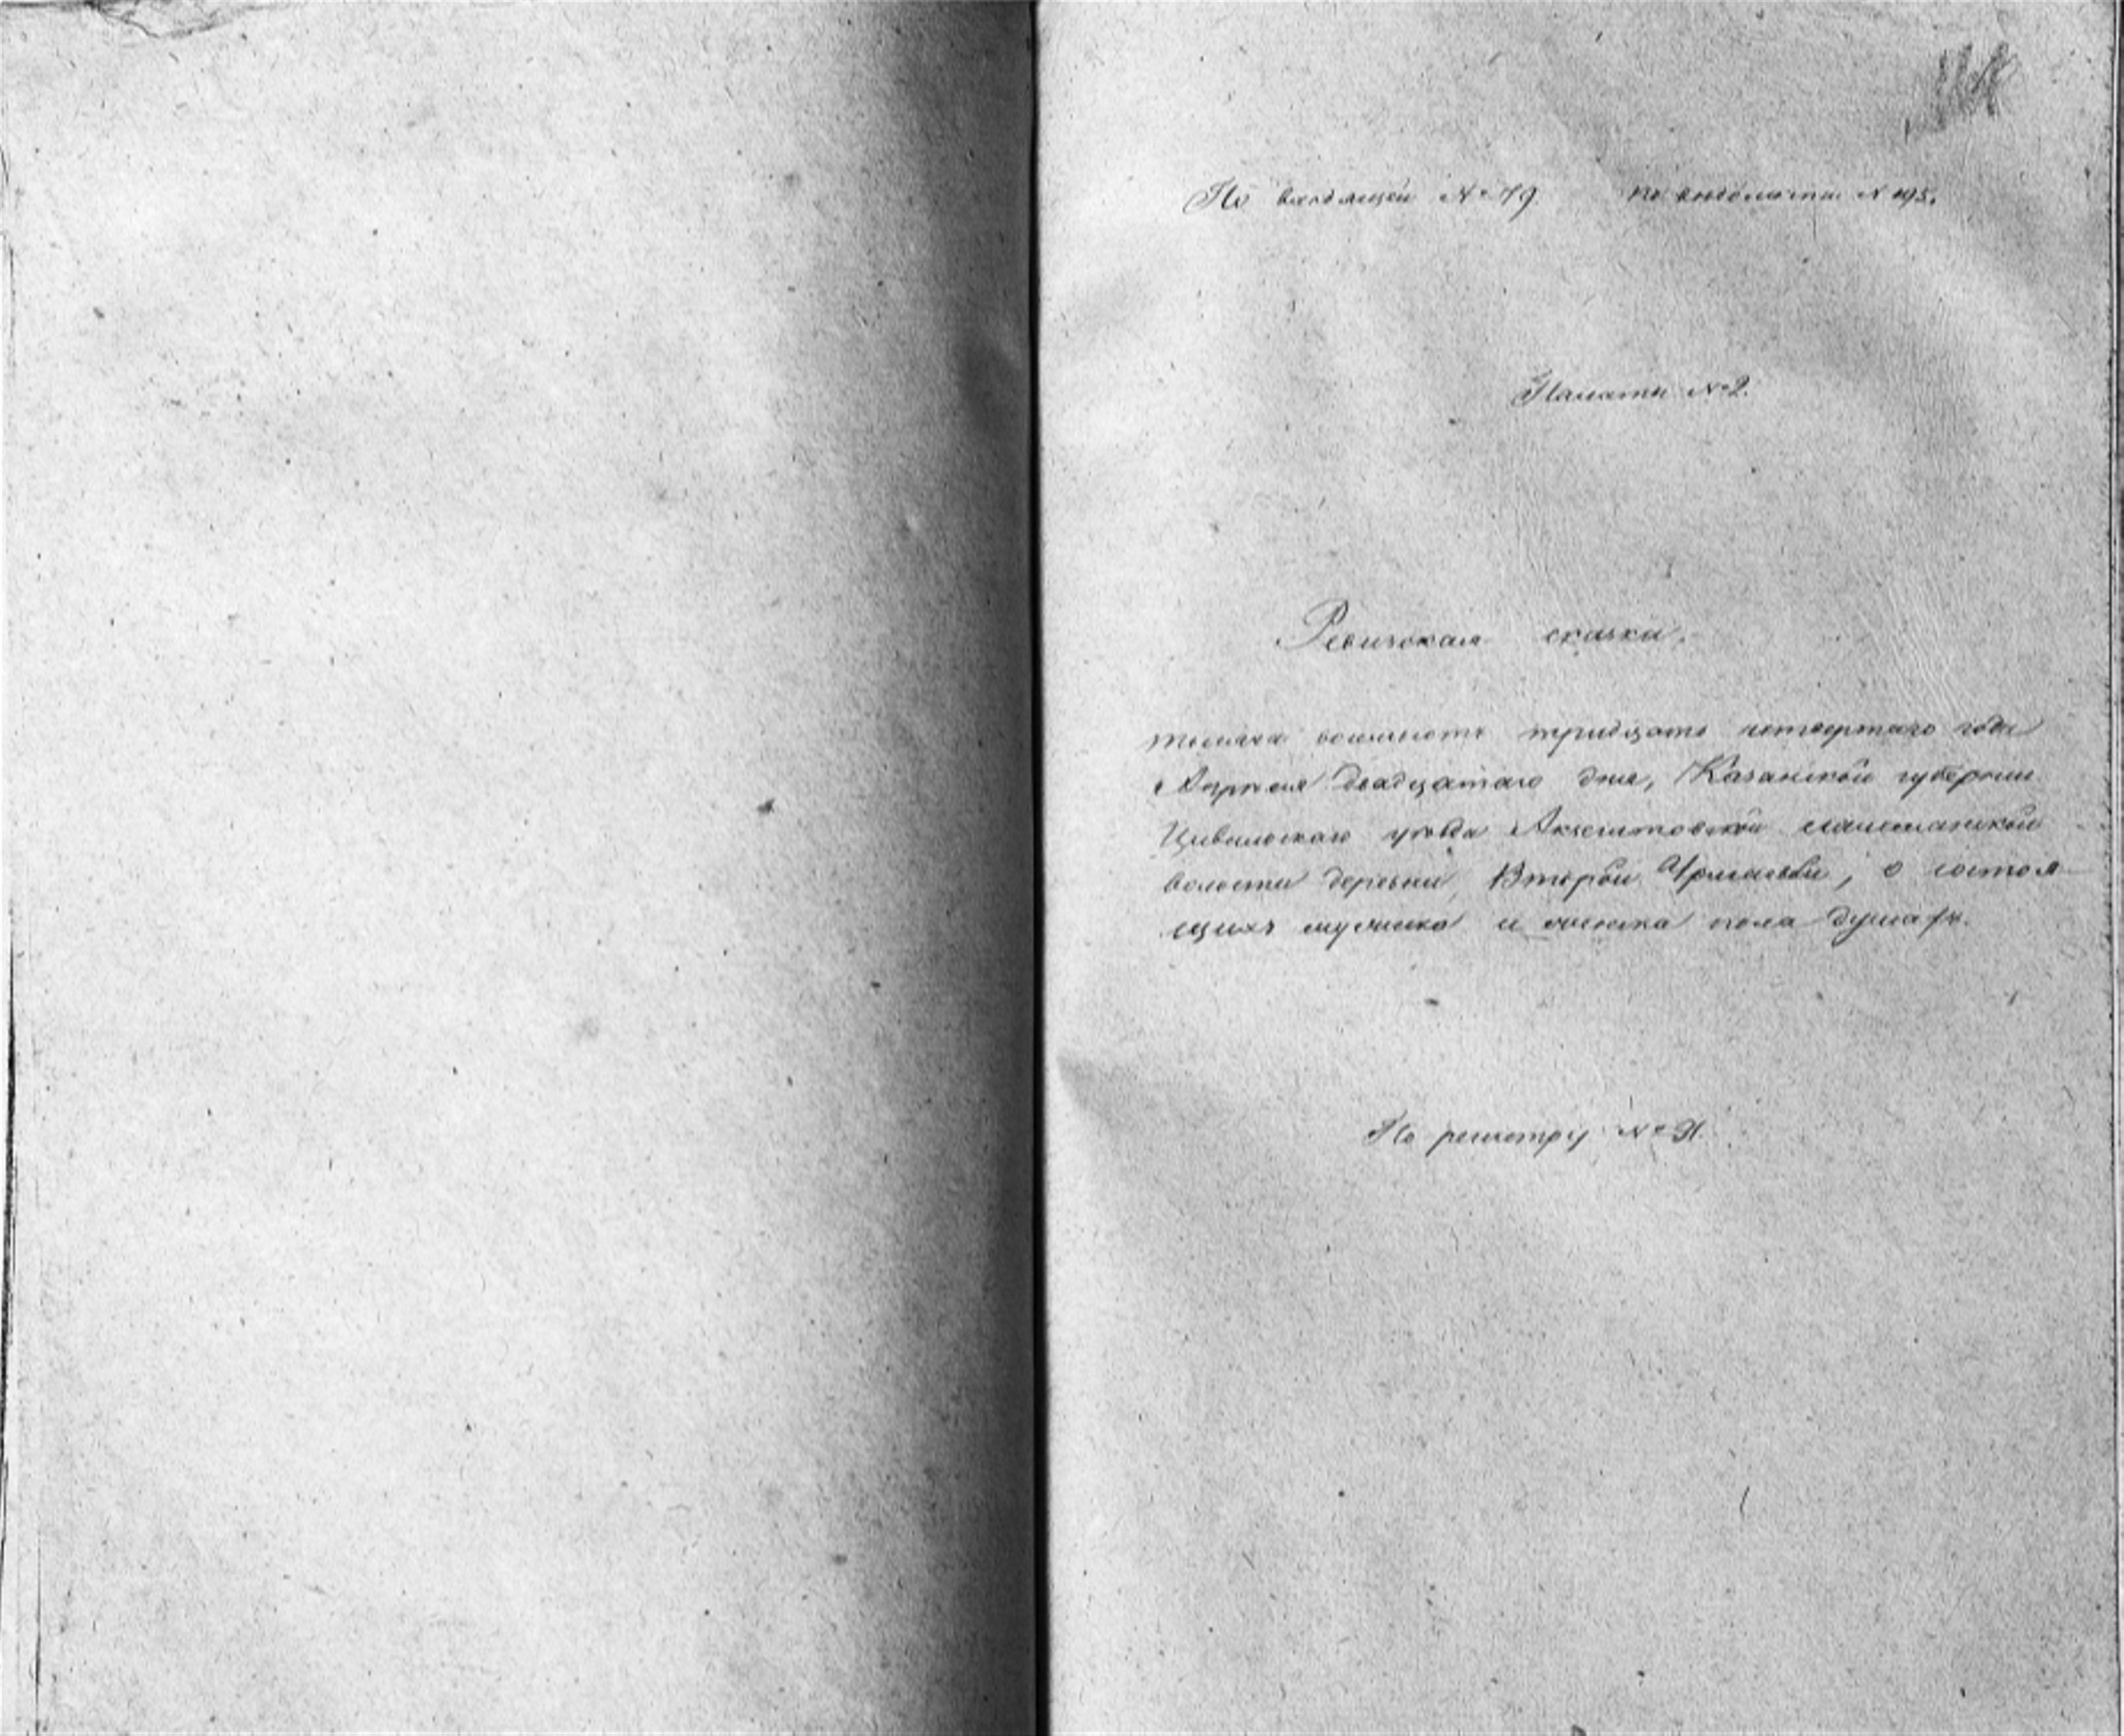 По входящей № 79. по ведомости № 195.
Палаты № 2.
Ревизская сказка.
тысяча восемьсотъ тридцать четвертаго года
Апреля двадцатаго дня, Казанской губернии
Цивильского уезда
волости деревни Второй Урмаевы, о состоя
щихъ мужеска и женска пола душахъ.
По регистру №